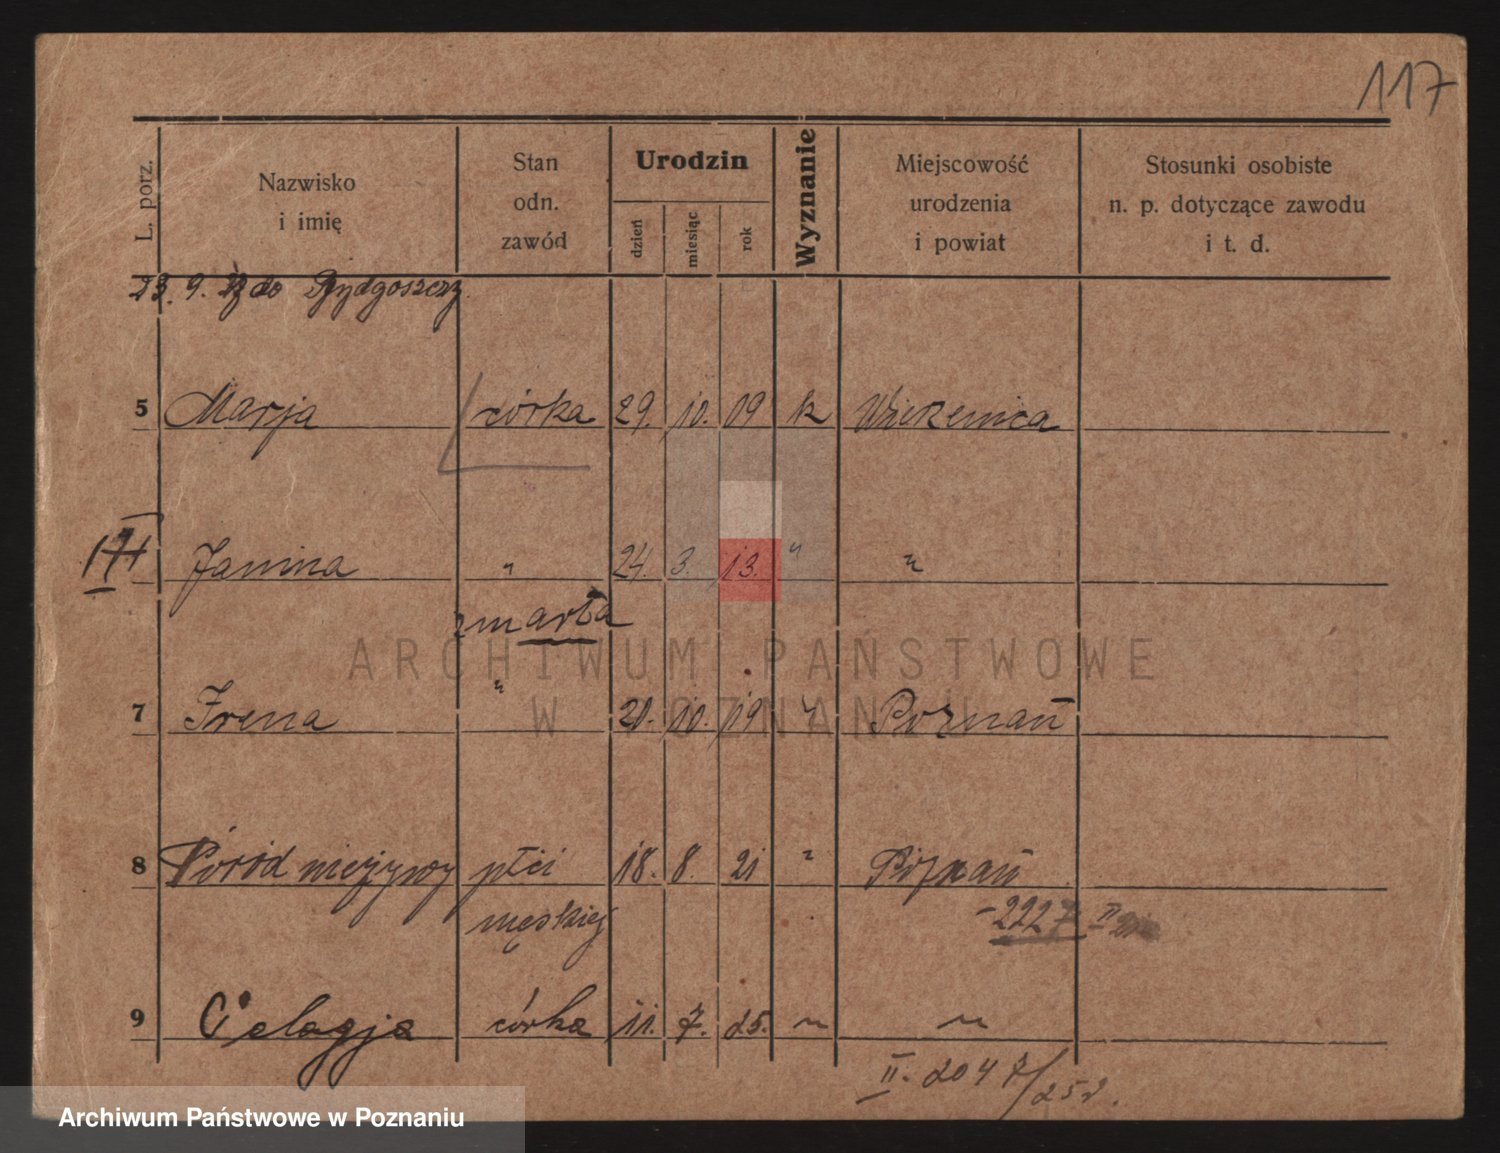 117
L. porz.
Nazwisko
i imię
Stan
odn.
zawód
Urodzin
dzień
miesiąc
rok
Wyznanie
Miejscowość
urodzenia
i powiat
Stosunki osobiste
n. p. dotyczące zawodu
i t. d.
23. 9. do Bydgoszczy
5 Marja córka 29. 10. 09 k
Janina " 24. 3. 13. " "
zmarła
ARCHIWUM PAŃSTWOWE
W POZNANIU
7 Irena " 20. 10. 19 " Poznań
8 Poród nieżywy płci 18. 8. 21 " Poznań
męskiej
- 2227 II
9 Pelagja córka 11. 7. 25. " "
II. 2047/252.
Archiwum Państwowe w Poznaniu